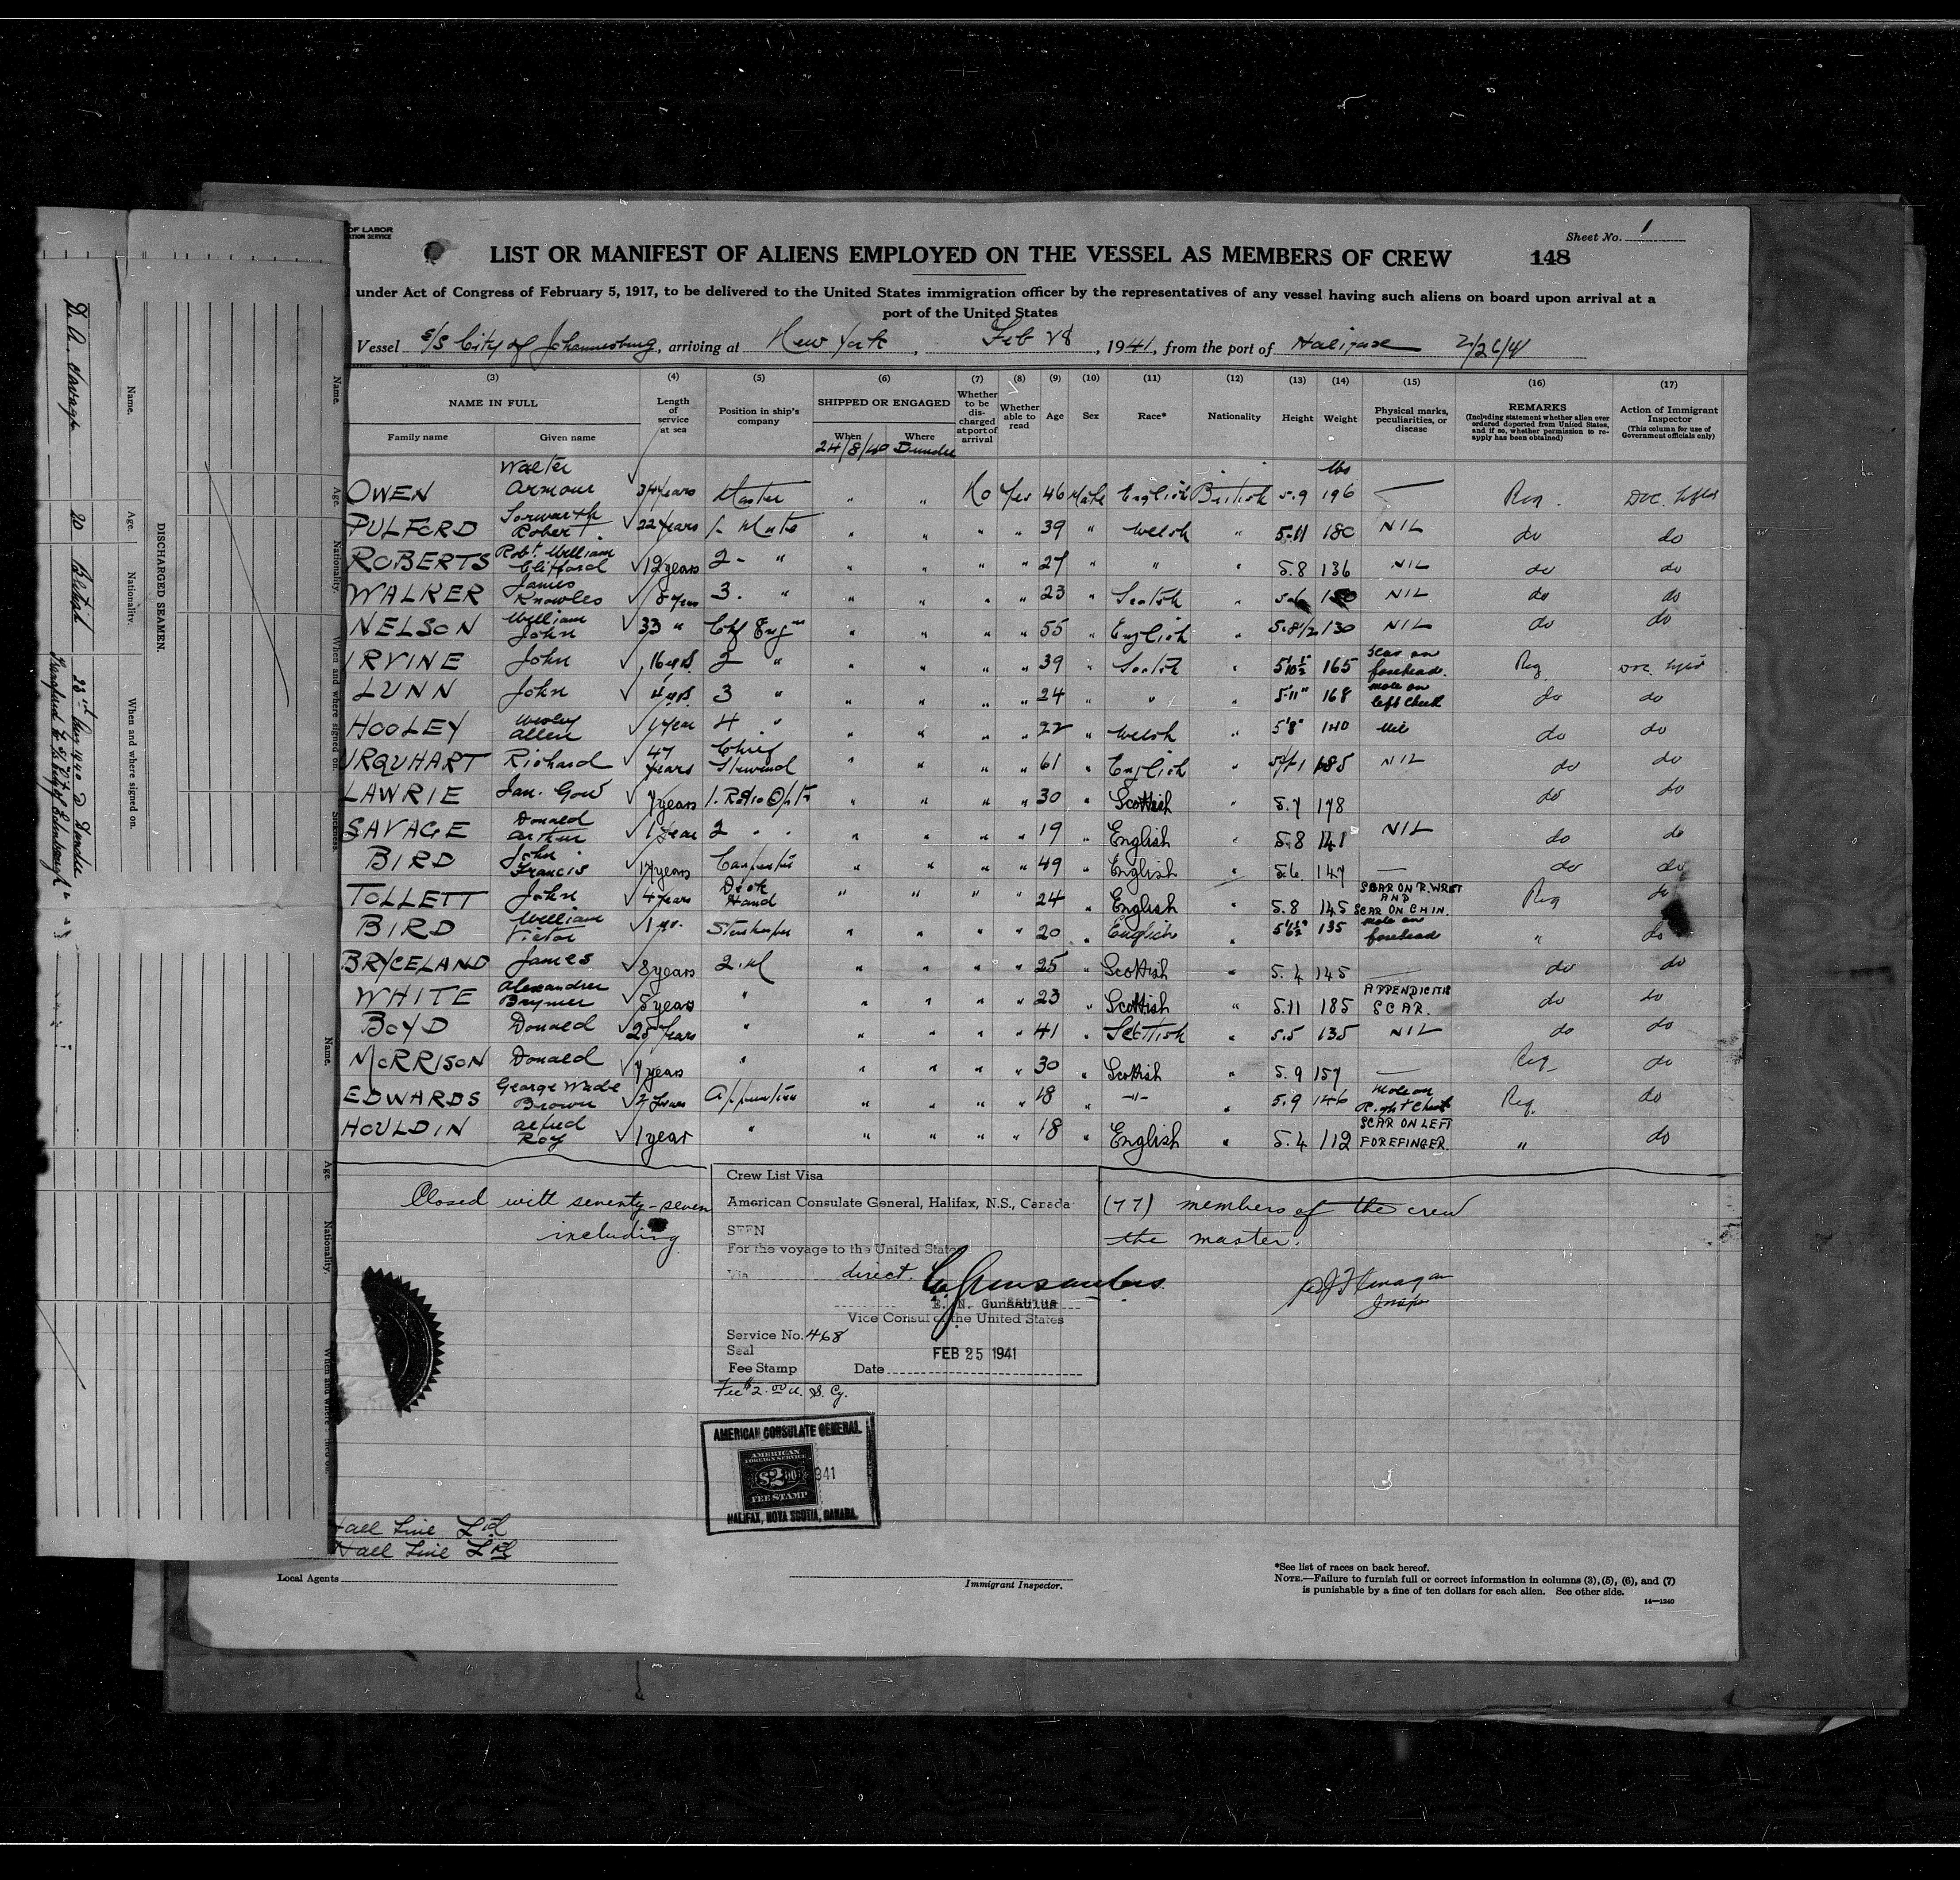 OF LABOR
ATION SERVICE
Sheet No. 1
LIST OR MANIFEST OF ALIENS EMPLOYED ON THE VESSEL AS MEMBERS OF CREW 148
under Act of Congress of February 5, 1917, to be delivered to the United States immigration officer by the representatives of any vessel having such aliens on board upon arrival at a
port of the United States
Vessel S/S City of Johannesburg, arriving at New York, Feb 28, 1941, from the port of Halifax 2/26/41
(3) (4) (5) (6) (7) (8) (9) (10) (11) (12) (13) (14) (15) (16) (17)
NAME IN FULL Length of service at sea Position in ship's company SHIPPED OR ENGAGED Whether to be discharged at port of arrival Whether able to read Age Sex Race* Nationality Height Weight Physical marks, peculiarities, or disease REMARKS (Including statement whether alien ever ordered deported from United States, and if so, whether permission to reapply has been obtained) Action of Immigrant Inspector (This column for use of Government officials only)
Family name Given name When Where
24/8/40 Dundee
lbs
OWEN Walter Armour 34 years Master " " No Yes 46 Male English British 5.9 196 — Req.
PULFORD Iorwerth Robert. 22 years 1- Mate " " " " 39 " Welsh " 5-11 180 NIL do do
ROBERTS Robt. William Clifford 12 years 2- " " " " " 27 " " " 5.8 136 NIL do do
WALKER James Knowles years 3. " " " " " 23 " Scotish " 5-6 NIL do do
NELSON William John 33 " Chf Engnr " " " " 55 " English " 5-8 1/2 130 NIL do do
IRVINE John 16 yrs. 2 " " " " " 39 " Scotish " 5'10½" 165 Scar on forehead. Req
LUNN John 4 yrs. 3 " " " " " 24 " " " 5'11" 168 mole on left cheek do do
HOOLEY Wesley Allen 1 year 4 " " " " " 22 " Welsh " 5'8" 140 Nil do do
URQUHART Richard 47 years Chief Steward " " " " 61 " English " 185 NIL do do
LAWRIE Ian. Gow 7 years 1. Radio Optr " " " " 30 " Scottish " 5.7 178 do do
SAVAGE Donald Arthur 1 year 2 " " " " " " 19 " English " 5.8 141 NIL do do
BIRD John Francis 17 years Carpenter " " " " 49 " English " 5.6. 147 — do do
TOLLETT John 4 years Deck Hand " " " " 24 " English " 5.8 145 SCAR ON R. WRIST AND SCAR ON CHIN. Req do
BIRD William Victor 1 yr. Storekeeper " " " " 20 " English " 5'6½" 135 mole on forehead " do
BRYCELAND James 8 years " " " " 25 " Scottish " 5.4 145 — do do
WHITE Alexander Brymer 5 years " " " " " 23 " Scottish " 5.11 185 APPENDICITIS SCAR. do do
BOYD Donald 25 Years " " " " " 41 " Scottish " 5.5 135 NIL do do
MORRISON Donald 7 years " " " " " 30 " Scottish 5.9 157 — Req- do
EDWARDS George Wade Brown 2 years Apprentice " " " " 18 " -"- " 5.9 146 Mole on Right Cheek Req. do
HOULDIN Alfred Roy 1 year " " " " " 18 " English " 5.4 112 SCAR ON LEFT FOREFINGER. " do
Closed with seventy-seven (77) members of the crew
including the master.
Crew List Visa
American Consulate General, Halifax, N.S., Canada
SEEN
For the voyage to the United States
Via direct.
E. N. Gunsaulus
Vice Consul of the United States
Service No. 468
Seal FEB 25 1941
Fee Stamp Date
Fee $2.00 U. S. Cy.
AMERICAN CONSULATE GENERAL
AMERICAN
FOREIGN SERVICE
$2.00 941
FEE STAMP
HALIFAX, NOVA SCOTIA, CANADA.
Hall Line Ltd
Hall Line Ltd
Local Agents
Immigrant Inspector.
*See list of races on back hereof.
NOTE.—Failure to furnish full or correct information in columns (3), (5), (6), and (7)
is punishable by a fine of ten dollars for each alien. See other side.
14—1240
DISCHARGED SEAMEN.
Name. Age. Nationality. When and where signed on.
D. A. Savage 20 British 23rd Aug 1940 Dundee
Name. Age. Nationality. When and where signed on. Sickness.
Name. Age. Nationality. When and where signed on.